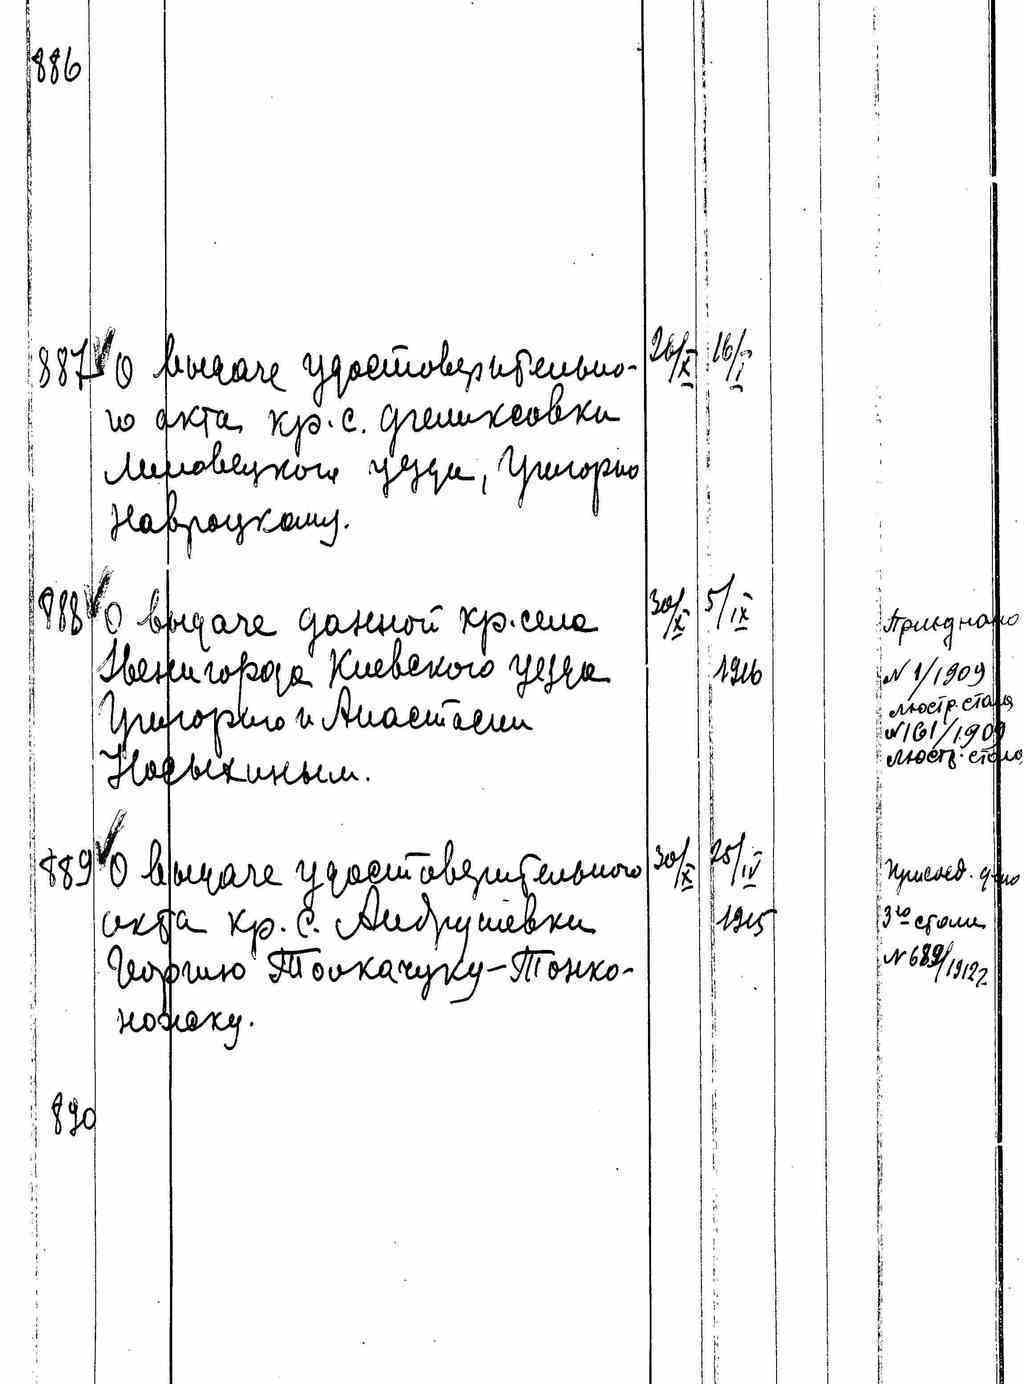 886
887 О выдаче удостоверительно- 26/X 16/I
го акта кр. с. Феликсовки
Липовецкого уезда, Григорию
Навроцкому.
888 О выдаче данной кр. села 30/X 5/IX
Звенигорода Киевского уезда 1916
Григорию и Анастасии
Носыхиным.
Приєднано
№ 1/1909
люстр. стола
№ 161/1909
люстр. стола
889 О выдаче удостоверительного 30/X 25/IV
акта кр. с. Андрушевки 1915
Георгию Толкачуку-Тонко-
ножку.
Присоед. дело
3го стола
№ 689/1912г
890